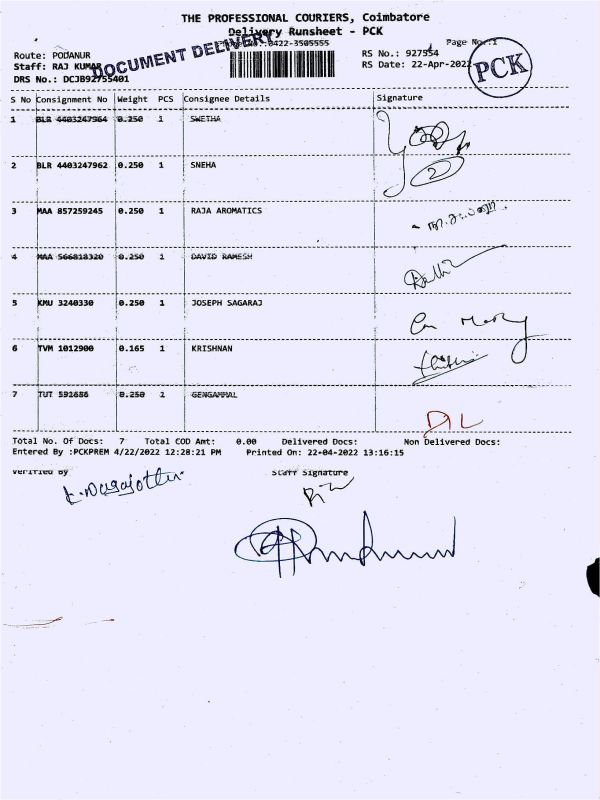 THE PROFESSIONAL COURIERS, Coimbatore
Delivery Runsheet - PCK
0422-3505555
Page No.:1
Route: PODANUR
Staff: RAJ KUMAR
DRS No.: DCJB92755401
DOCUMENT DELIVERY
RS No.: 927554
RS Date: 22-Apr-2022
PCK
S No Consignment No Weight PCS Consignee Details Signature
1 BLR 4403247964 0.250 1 SWETHA
2 BLR 4403247962 0.250 1 SNEHA
2
3 MAA 857259245 0.250 1 RAJA AROMATICS
4 MAA 566818320 0.250 1 DAVID RAMESH
5 KMU 3240330 0.250 1 JOSEPH SAGARAJ
6 TVM 1012900 0.165 1 KRISHNAN
7 TUT 592686 0.250 1 GENGAMMAL
D/L
Total No. Of Docs: 7 Total COD Amt: 0.00 Delivered Docs: Non Delivered Docs:
Entered By :PCKPREM 4/22/2022 12:28:21 PM Printed On: 22-04-2022 13:16:15
Verified By Staff Signature